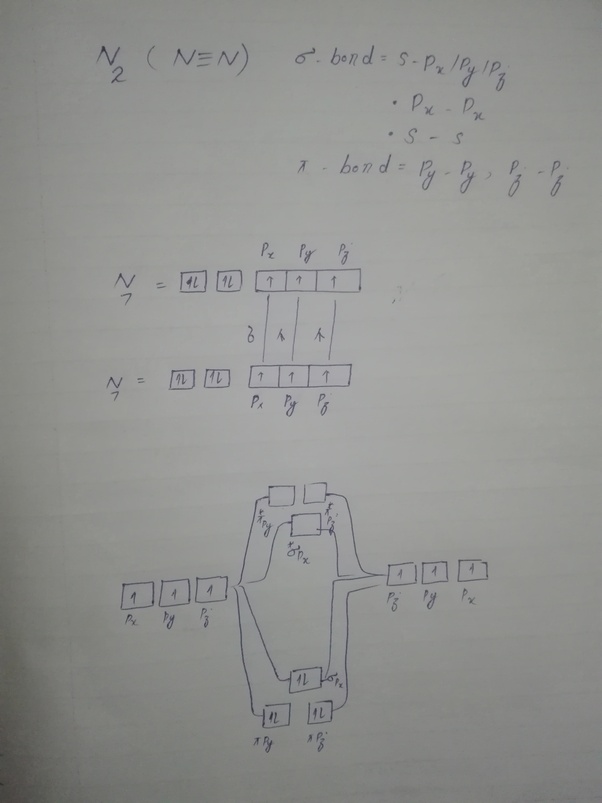 N₂ ( N≡N ) σ - bond = s - Px / Py / Pz
• Px - Px
• s - s
π - bond = Py - Py , Pz - Pz
Px Py Pz
₇N = ↑↓ ↑↓ ↑ ↑ ↑
σ π π
₇N = ↑↓ ↑↓ ↑ ↑ ↑
Px Py Pz
π*Py π*Pz
σ*Px
↑ ↑ ↑ ↑ ↑ ↑
Px Py Pz Pz Py Px
↑↓ σPx
↑↓ ↑↓
πPy πPz